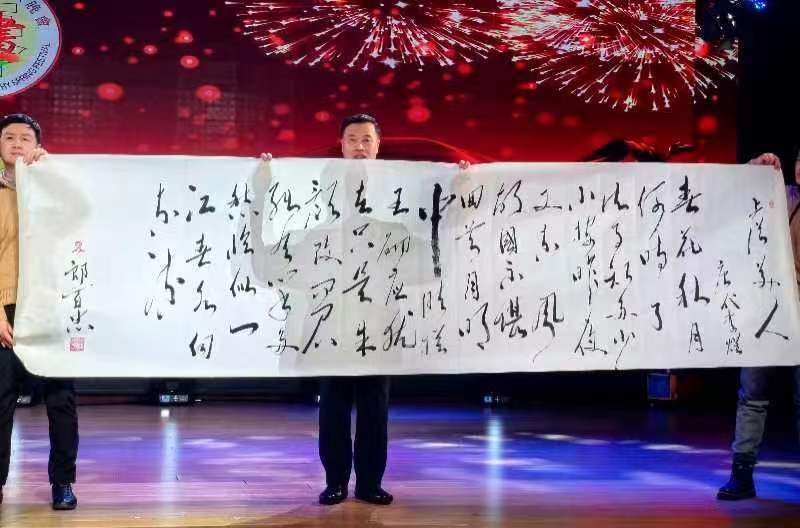 虞美人
唐代李煜
春花秋月
何时了
往事知多少
小楼昨夜
又东风
故国不堪
回首月明
中雕栏
玉砌应犹
在只是朱
颜改问君
能有几多
愁恰似一
江春水向
东流
晚會
SPRING FESTIVAL